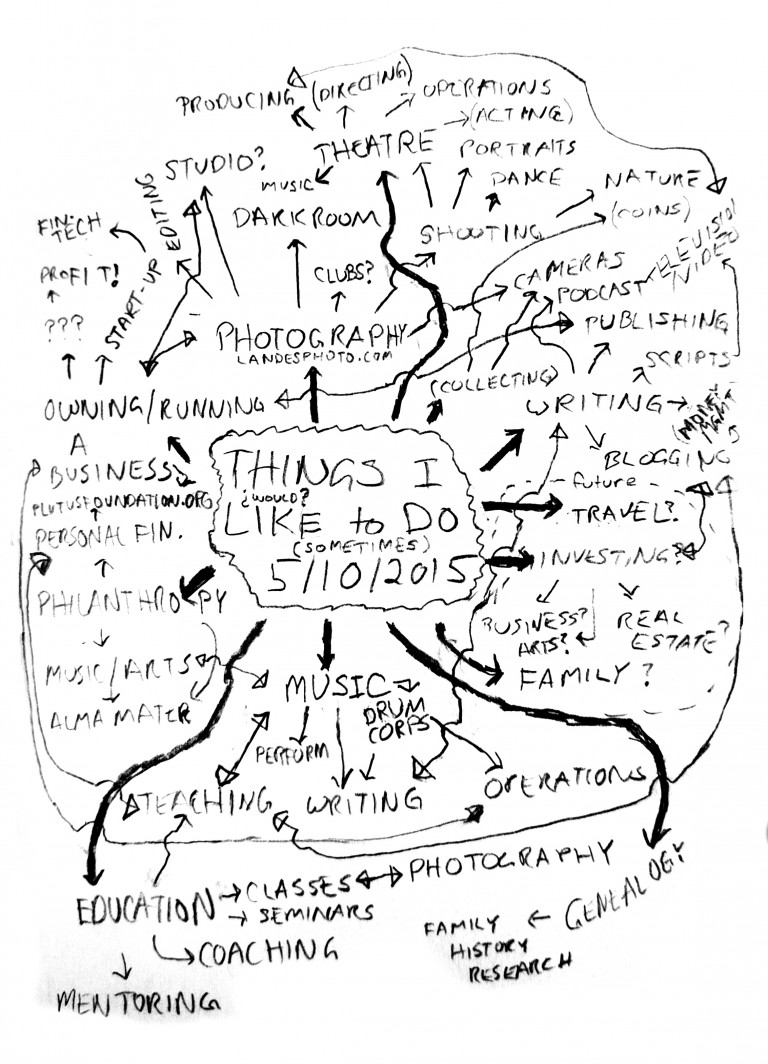 PRODUCING
(DIRECTING)
OPERATIONS
(ACTING)
THEATRE
PORTRAITS
STUDIO?
MUSIC
DANCE
NATURE
(COINS)
DARKROOM
SHOOTING
EDITING
FIN-TECH
START-UP
PROFIT!
???
CLUBS?
CAMERAS
PODCAST
TELEVISION/
VIDEO
PHOTOGRAPHY
LANDESPHOTO.COM
PUBLISHING
SCRIPTS
(COLLECTING)
OWNING/RUNNING
A
BUSINESS
WRITING
(MONEY
MGMT
BLOGGING
PLUTUSFOUNDATION.ORG
PERSONAL FIN.
THINGS I
¿WOULD?
LIKE to DO
(SOMETIMES)
5/10/2015
future
TRAVEL?
INVESTING?
PHILANTHROPY
BUSINESS?
ARTS?
REAL
ESTATE?
FAMILY?
MUSIC/ARTS
ALMA MATER
MUSIC
DRUM
CORPS
PERFORM
TEACHING
WRITING
OPERATIONS
EDUCATION
CLASSES
PHOTOGRAPHY
SEMINARS
COACHING
MENTORING
GENEALOGY
FAMILY
HISTORY
RESEARCH